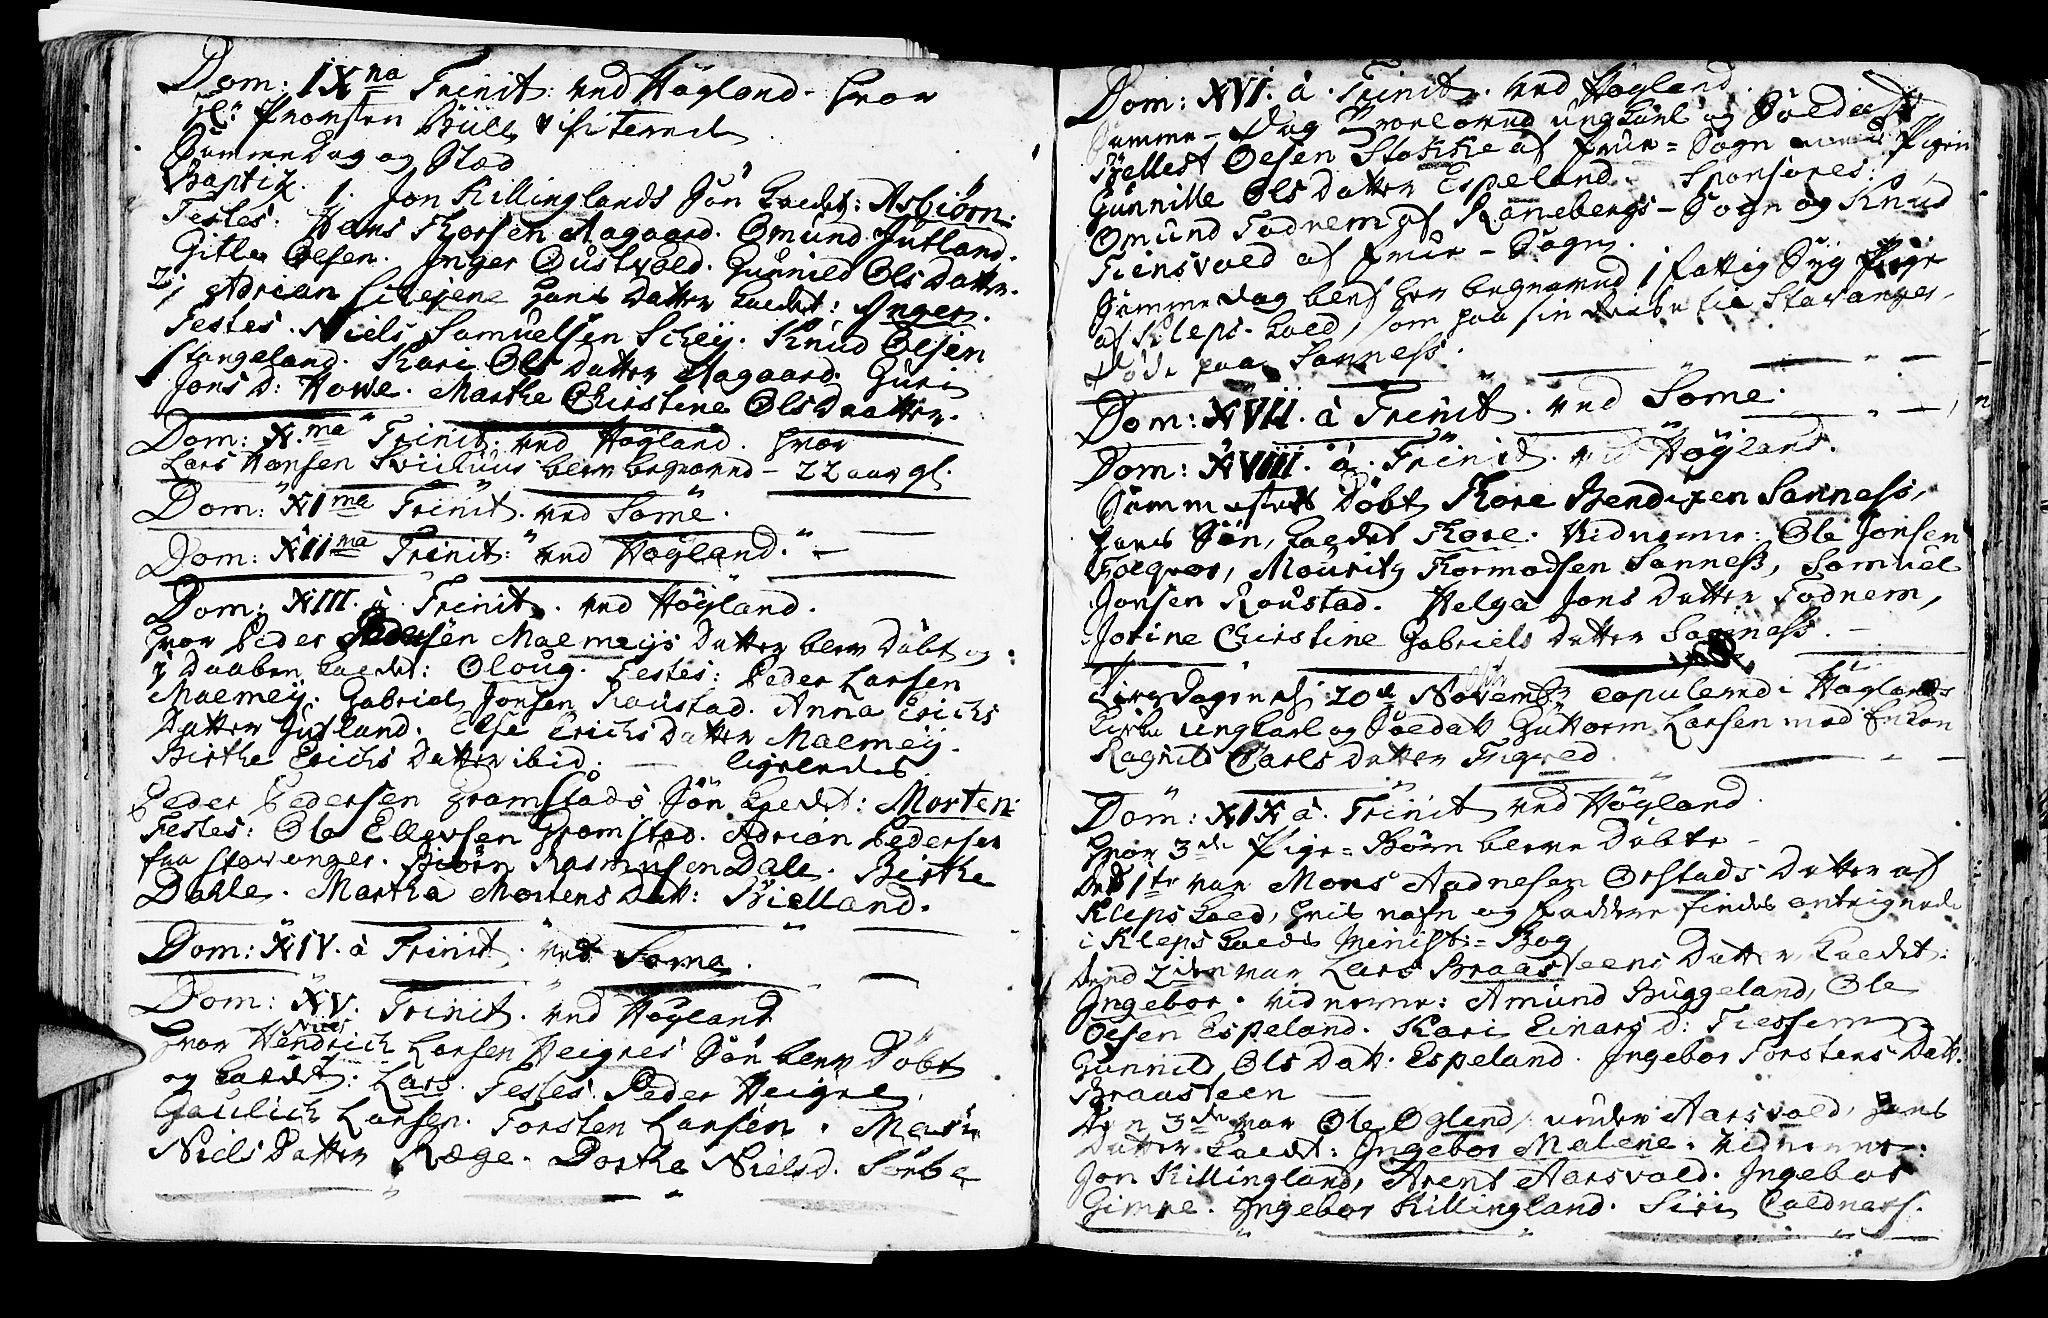 Dom: IX na Trinit: ved Högland. hvor
Hr. Provsten Büll visiterede
Samme Dag og Stæd
Baptiz. 1. Jon Killinglands Sön kaldet: Asbiørn:
Testes: Hans Thorsen Aagaard. Omund Jutland.
Gitle Olsen. Inger Dustvold. Gunnild Ols Datter.
2) Adrian Scheyene hans Datter kaldet: Inger.
Testes. Niels Samuelsen Scheÿ. Knud Olsen
Stangeland. Kari Ols Datter Aagaard. Guri
Jons D: Howe. Marthe Christine Ols Datter.
Dom: X. ma Trinit: ved Högland. hvor
Lars Hansen blev begraved - 22 aar gl.
Dom: XI ma Trinit. ved Some.
Dom: XII ma Trinit: ved Högland. -
Dom: XIII. a Trinit. ved Högland.
hvor Peder Pedersen Malmeijs Datter blev Döbt og
i Daaben kaldet: Oloug. Testes: Peder Larsen
Malmeÿ. Gabriel Jonsen Roustad. Anna Erichs
Datter Jutland. Else Erichs Datter Malmeÿ.
Birthe Erichs Datter ibid: ligeledes
Peder Pedersen Gramstads Sön kaldet: Morten:
Testes: Ole Ellevsen Gramstad. Adrian Pedersen
fra Stavanger. Biörn Rasmusen Dale. Birthe
Dahle. Martha Mortens Datt: Bielland.
Dom: XIV. a Trinit. ved Soma.
Dom: XV. Trinit. ved Högland
Niels
hvor Hendrich Larsen Heigres Sön blev Döbt
og kaldet: Lars. Testes: Peder Heigre,
Gaulich Larsen. Torsten Larsen. Mari
Niels Datter Ræge. Dorthe Nielsd. Sörbe
Dom: XVI. a. Trinit. ved Högland.
Samme Dag Trolovede ungkarl og Soldat
Tellest Olsen Stokke af Frue-Sogn med Pigen
Gunnille Ols Datter Espeland. Sponsores:
Omund Fodnem af Ranebergs-Sogn og Knud
Tiensvold af Frue-Sogn.
Samme Dag blev her begraved 1 fattig Syg Pige
af Kleps-Gield, som paa sin Reise til Stavanger,
Döde paa Sanness.
Dom: XVII. a Trinit. ved Some.
Dom: XVIII. a. Trinit. ved Högland.
Sammesteds Döbt Thore Bendixen Sanness,
hans Sön, kaldet Thore. Vidnerne: Ole Jonsen
Folqvor, Mouritz Thormodsen Sanness, Samuel
Jonsen Roustad. Helga Jons Datter Fodnem,
Jorine Christine Gabriels Datter Sanness.
Tirsdagen d. 20de Novembr copulered i Höglands
Kirke ungkarl og Soldat Guttorm Larsen med Enken
Ragnild Carls Datter Figved.
Dom: XIX a. Trinit ved Högland.
hvor 3de Pige-Börn bleve Döbte
Ded 1te var Mons Aadnesen Orstads Datter af
Kleps Gield, hvis nafn og Faddere findes antegnede
i Kleps Gields Minist:-Bog
Dend 2den var Lars Braasteens Datter, kaldet:
Ingebor. Vidnerne: Amund Buggeland, Ole
Olsen Espeland. Kari Einars d: Tiessem
Gunnild Ols Datt. Espeland. Ingebor Torstens Datt.
Braasteen
Den 3de var Ole Ogland, under Aarsvold, hans
Datter kaldt: Ingebor Malene. Vidnerne:
Jon Killingland, Arent Aarsvold. Ingebor
Gimre. Ingebor Killingland. Siri Coldness.